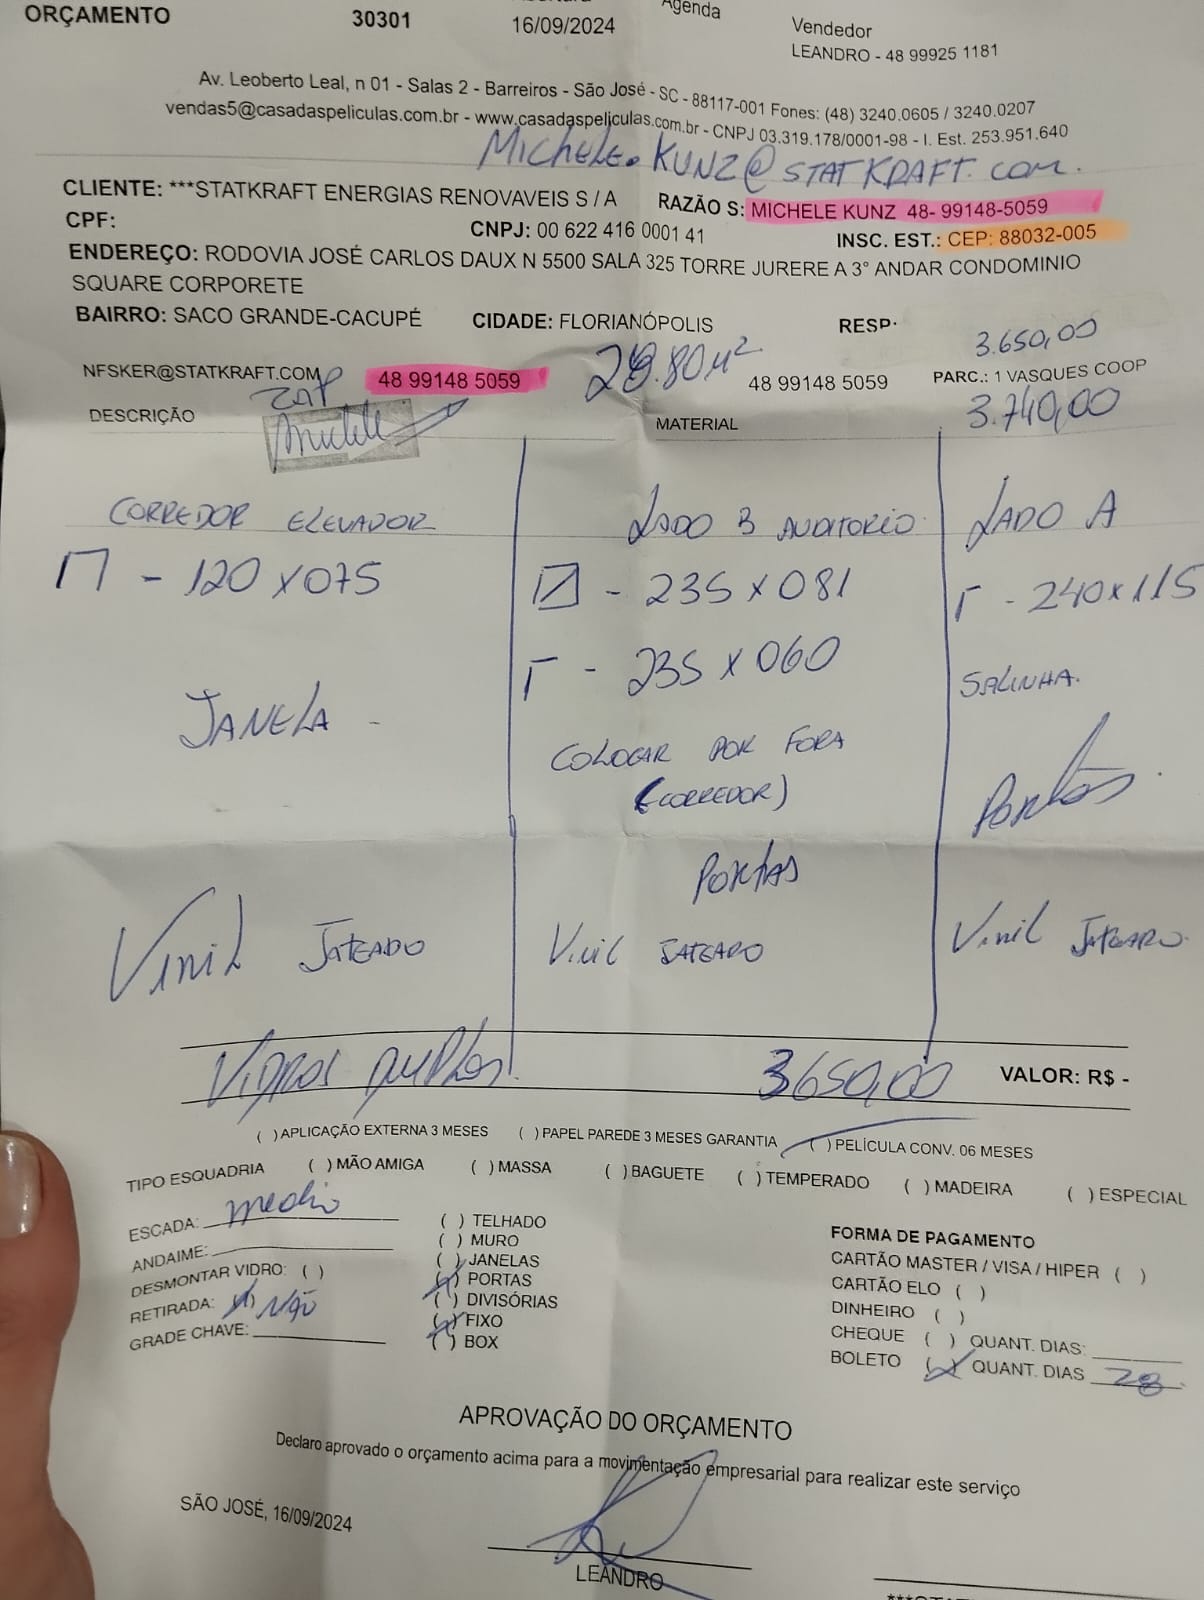 ORÇAMENTO 30301 16/09/2024 Agenda
Vendedor
LEANDRO - 48 99925 1181
Av. Leoberto Leal, n 01 - Salas 2 - Barreiros - São José - SC - 88117-001 Fones: (48) 3240.0605 / 3240.0207
vendas5@casadaspeliculas.com.br - www.casadaspeliculas.com.br - CNPJ 03.319.178/0001-98 - I. Est. 253.951.640
MICHELE.KUNZ@STATKRAFT.COM.
CLIENTE: ***STATKRAFT ENERGIAS RENOVAVEIS S / A RAZÃO S: MICHELE KUNZ 48- 99148-5059
CPF: CNPJ: 00 622 416 0001 41 INSC. EST.: CEP: 88032-005
ENDEREÇO: RODOVIA JOSÉ CARLOS DAUX N 5500 SALA 325 TORRE JURERE A 3° ANDAR CONDOMINIO
SQUARE CORPORETE
BAIRRO: SACO GRANDE-CACUPÉ CIDADE: FLORIANÓPOLIS RESP:
3.650,00
NFSKER@STATKRAFT.COM 48 99148 5059 .80 M² 48 99148 5059 PARC.: 1 VASQUES COOP
ZAP 3.740,00
DESCRIÇÃO Michele MATERIAL
CORREDOR ELEVADOR LADO B AUDITORIO LADO A
- 120 X 075 - 235 X 081 - 240 X 115
- 235 X 060
JANELA - SALINHA.
COLOCAR POR FORA
(CORREDOR) PORTAS.
PORTAS
VINIL JATEADO VINIL JATEADO VINIL JATEADO
VIDROS DUPLOS! 3650,00 VALOR: R$ -
( ) APLICAÇÃO EXTERNA 3 MESES ( ) PAPEL PAREDE 3 MESES GARANTIA ( ) PELÍCULA CONV. 06 MESES
TIPO ESQUADRIA ( ) MÃO AMIGA ( ) MASSA ( ) BAGUETE ( ) TEMPERADO ( ) MADEIRA ( ) ESPECIAL
ESCADA: medio
ANDAIME:
DESMONTAR VIDRO: ( )
RETIRADA: (X) NÃO
GRADE CHAVE:
( ) TELHADO
( ) MURO
( ) JANELAS
(X) PORTAS
( ) DIVISÓRIAS
(X) FIXO
( ) BOX
FORMA DE PAGAMENTO
CARTÃO MASTER / VISA / HIPER ( )
CARTÃO ELO ( )
DINHEIRO ( )
CHEQUE ( ) QUANT. DIAS:
BOLETO (X) QUANT. DIAS 28
APROVAÇÃO DO ORÇAMENTO
Declaro aprovado o orçamento acima para a movimentação empresarial para realizar este serviço
SÃO JOSÉ, 16/09/2024
LEANDRO